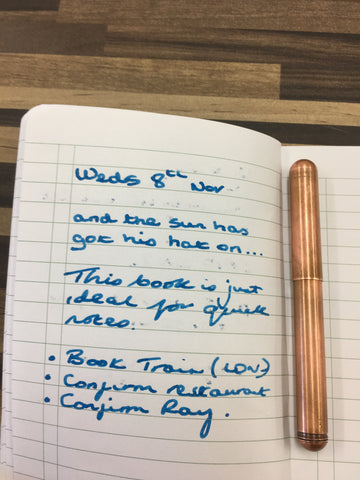 Weds 8th Nov
and the sun has
got his hat on...
This book is just
ideal for quick
notes.
• Book Train (LDN)
• Confirm restaurant
• Confirm Ray.